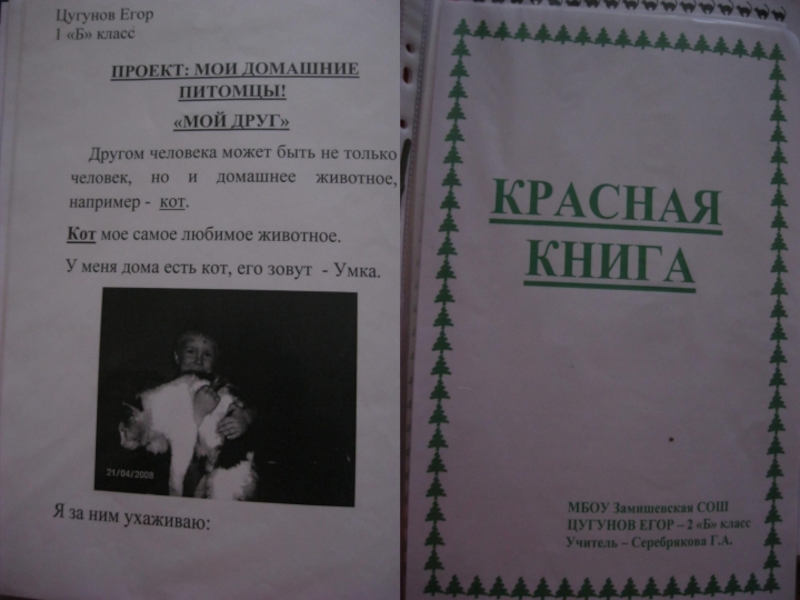 Цугунов Егор
1 «Б» класс
ПРОЕКТ: МОИ ДОМАШНИЕ
ПИТОМЦЫ!
«МОЙ ДРУГ»
Другом человека может быть не только
человек, но и домашнее животное,
например - кот.
Кот мое самое любимое животное.
У меня дома есть кот, его зовут - Умка.
21/04/2008
Я за ним ухаживаю:
КРАСНАЯ
КНИГА
МБОУ Замишевская СОШ
ЦУГУНОВ ЕГОР – 2 «Б» класс
Учитель – Серебрякова Г.А.